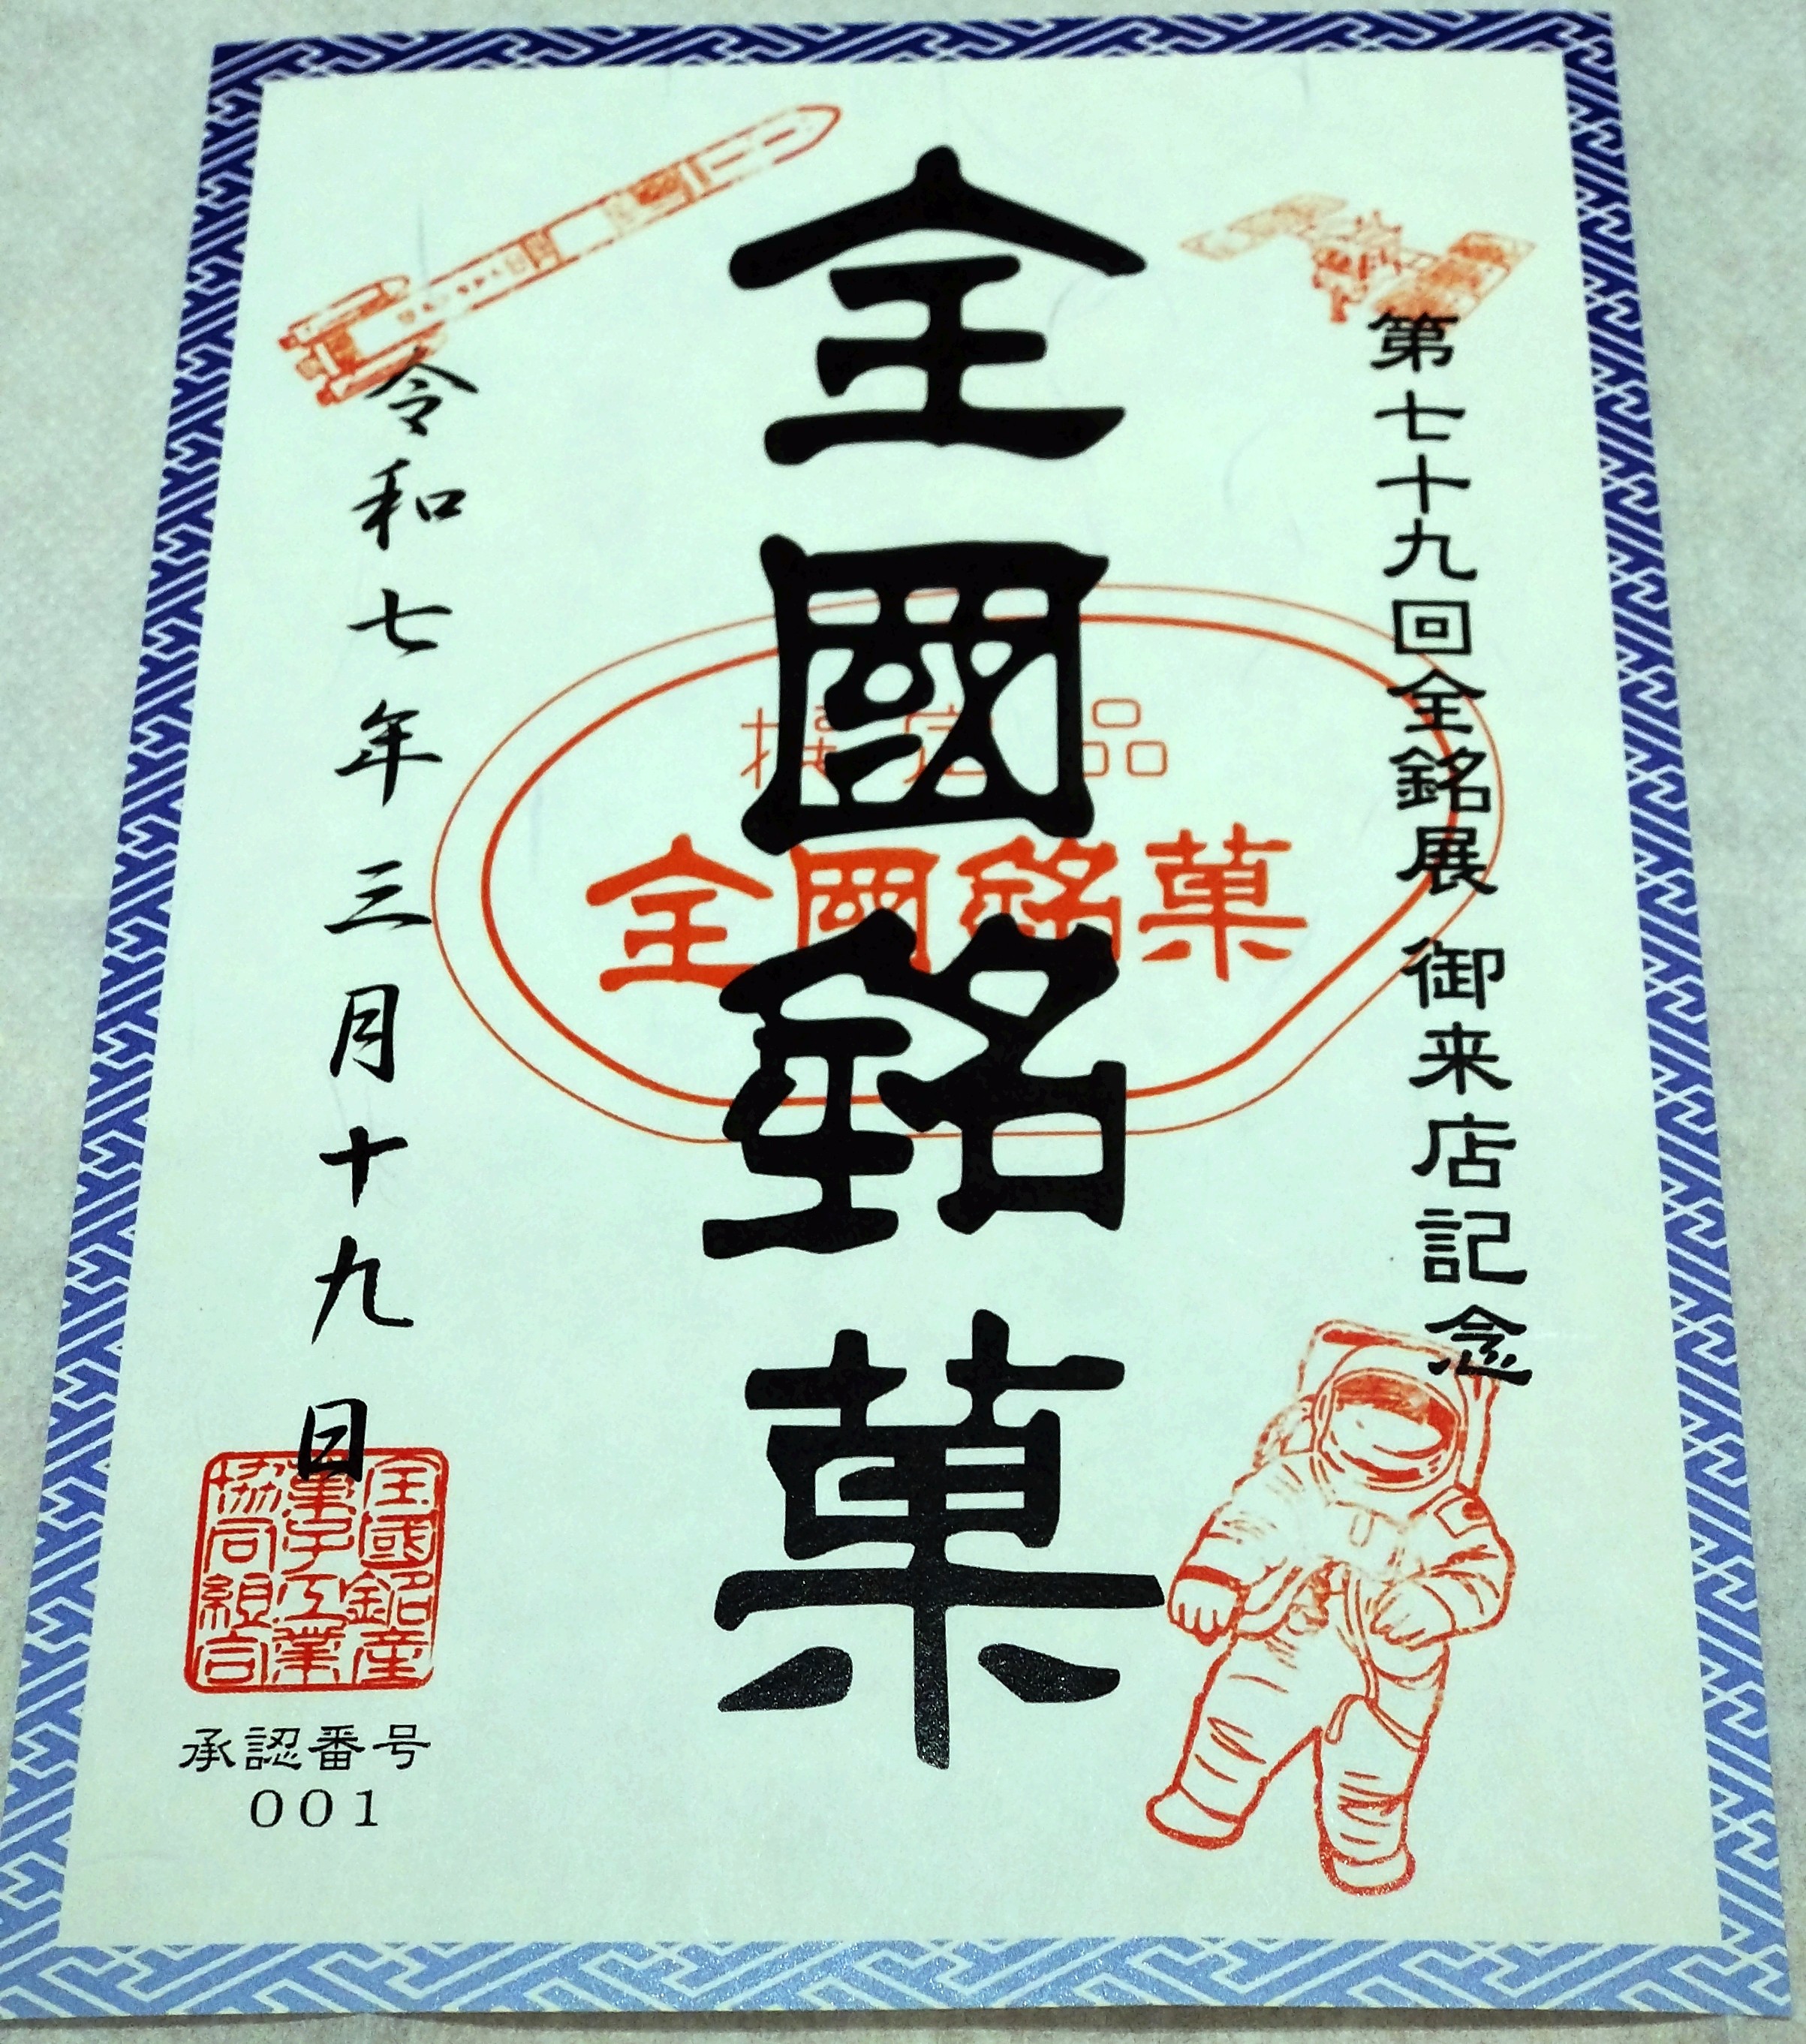 第七十九回全銘展 御来店記念
全國銘菓
撰定品
全國銘菓
令和七年三月十九日
全國銘産
菓子工業
協同組合
承認番号
001